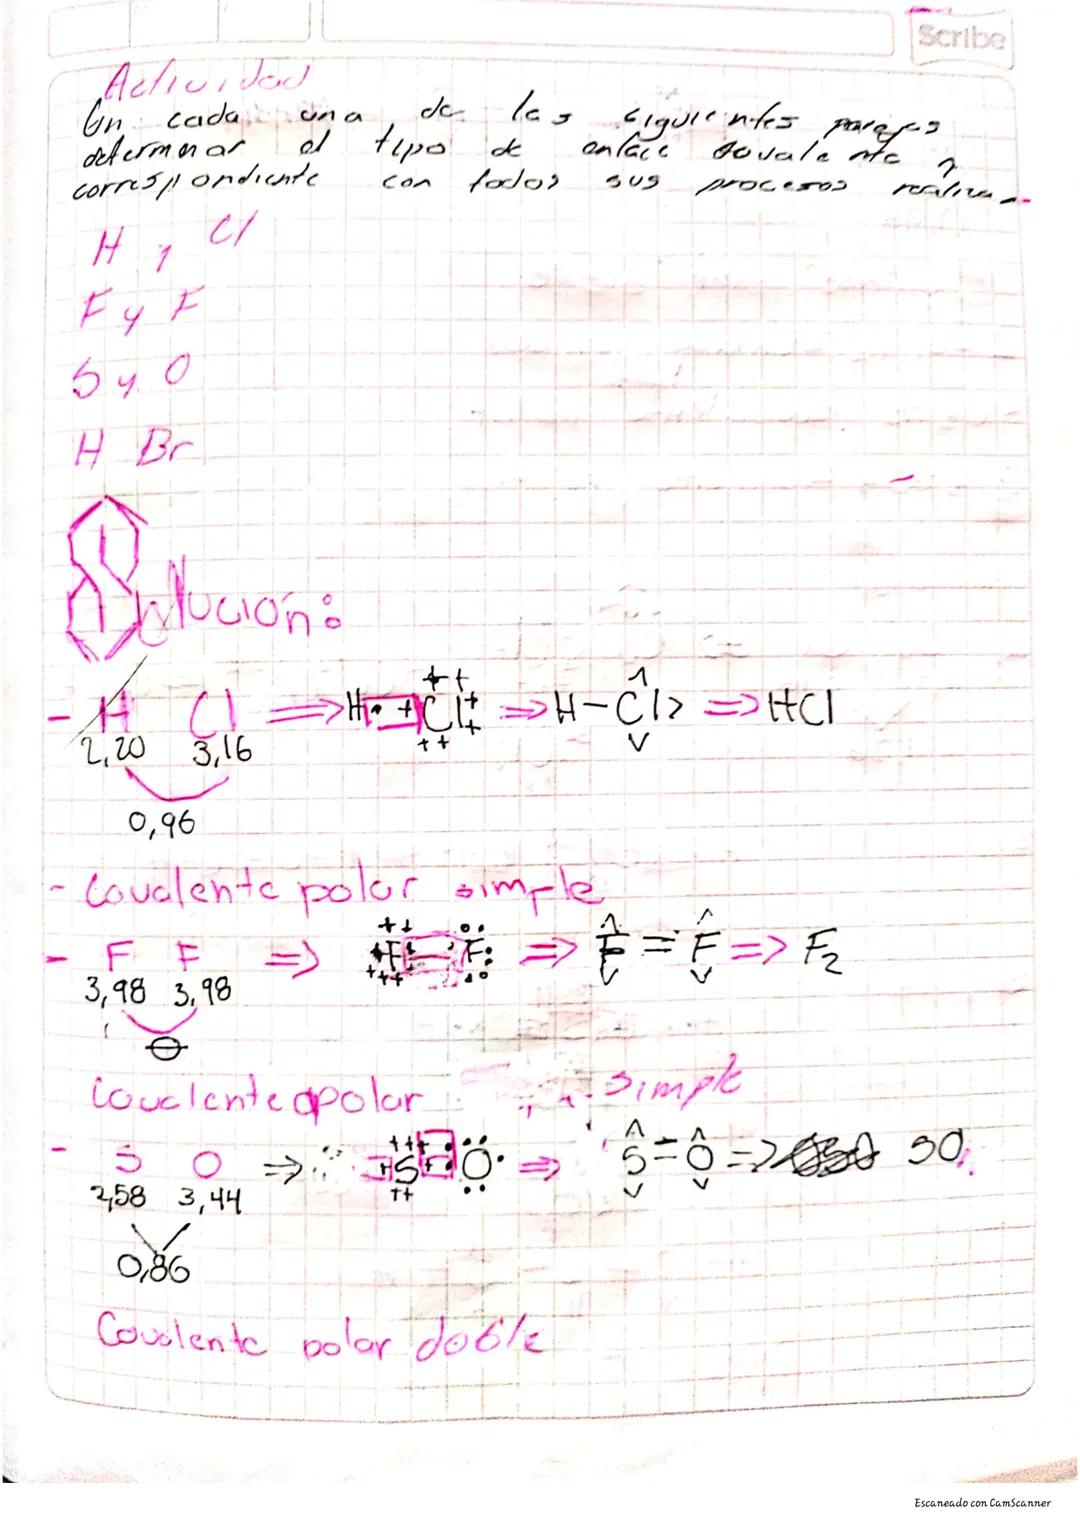 Scribe
Actividad
En cada una de las siguientes parejas
determinar el tipo de enlace covalente y
correspondiente con todos sus procesos realiza
H y Cl
F y F
S y O
H Br
Solución:
- H Cl => H• +Cl => H-Cl => HCl
2,20 3,16
0,96
- Covalente polar simple
- F F => F F => F = F => F₂
3,98 3,98
0
Covalente apolar simple
- S O => S O => S = O => SO
2,58 3,44
0,86
Covalente polar doble
Escaneado con CamScanner